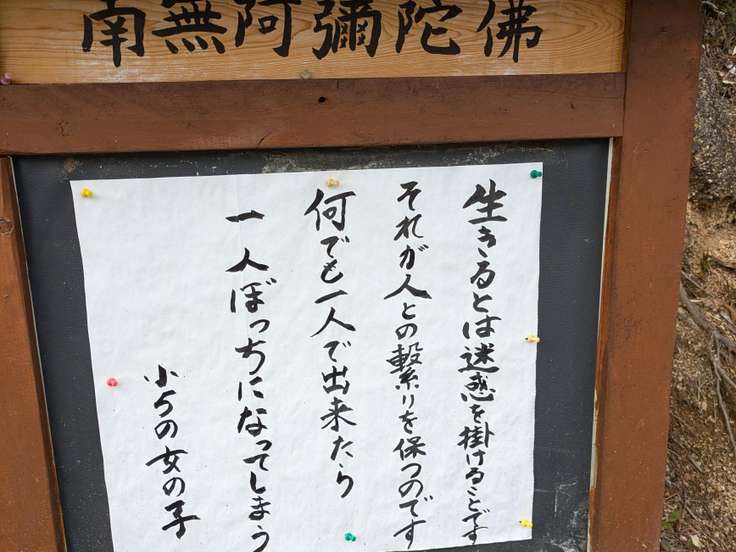 南無阿彌陀佛
生きるとは迷惑を掛けることです
それが人との繋りを保つのです
何でも一人で出来たら
一人ぼっちになってしまう
小5の女の子